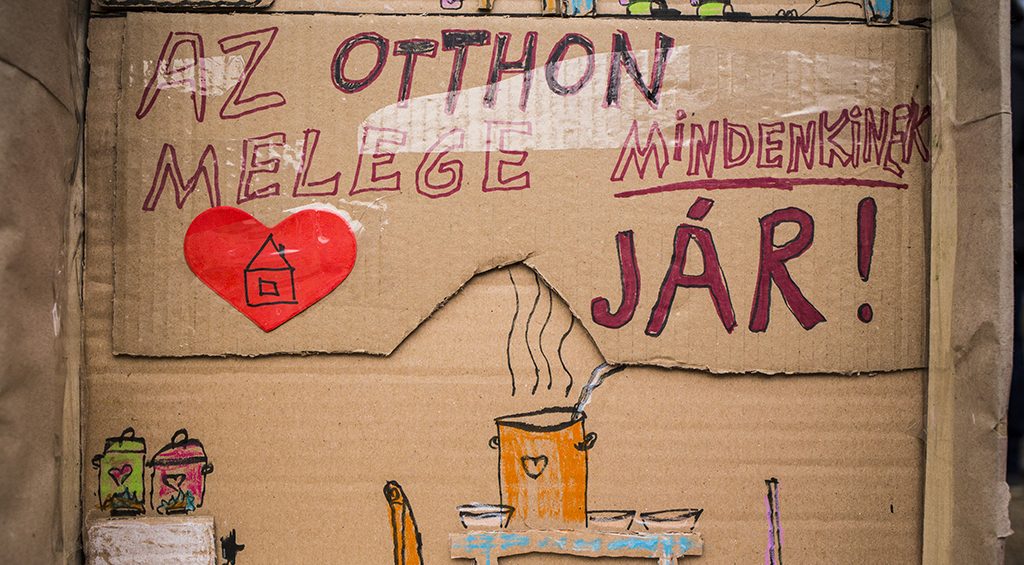 AZ OTTHON
MELEGE MINDENKINEK
JÁR!